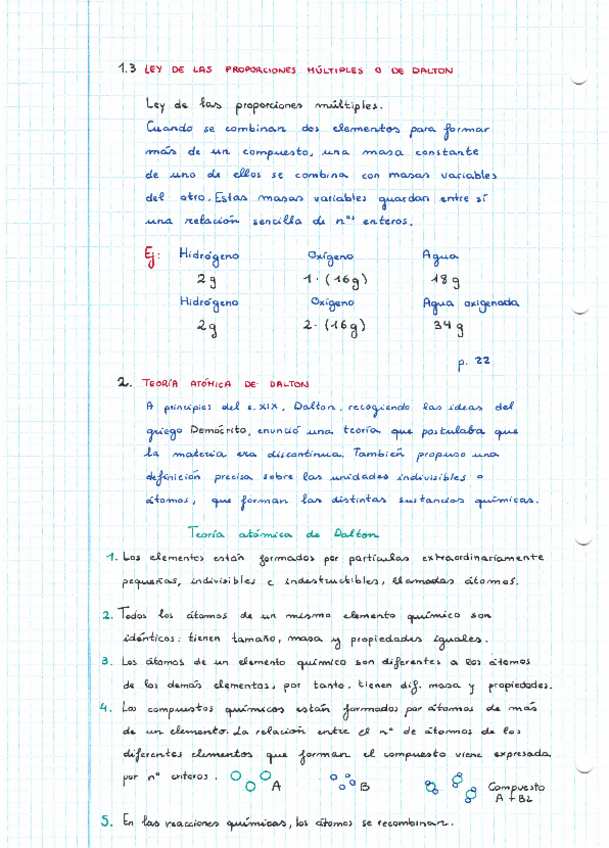 1.3 LEY DE LAS PROPORCIONES MÚLTIPLES O DE DALTON
Ley de las proporciones múltiples.
Cuando se combinan dos elementos para formar
más de un compuesto, una masa constante
de uno de ellos se combina con masas variables
del otro. Estas masas variables guardan entre sí
una relación sencilla de nºs enteros.
Ej: Hidrógeno Oxígeno Agua
2g 1·(16g) 18g
Hidrógeno Oxígeno Agua oxigenada
2g 2·(16g) 34g
p. 22
2. TEORÍA ATÓMICA DE DALTON
A principios del s. XIX, Dalton, recogiendo las ideas del
griego Demócrito, enunció una teoría que postulaba que
la materia era discontinua. También propuso una
definición precisa sobre las unidades indivisibles o
átomos, que forman las distintas sustancias químicas.
Teoría atómica de Dalton
1. Los elementos están formados por partículas extraordinariamente
pequeñas, indivisibles e indestructibles, llamadas átomos.
2. Todos los átomos de un mismo elemento químico son
idénticos: tienen tamaño, masa y propiedades iguales.
3. Los átomos de un elemento químico son diferentes a los átomos
de los demás elementos, por tanto, tienen dif. masa y propiedades.
4. Los compuestos químicos están formados por átomos de más
de un elemento. La relación entre el nº de átomos de los
diferentes elementos que forman el compuesto viene expresada
por nº enteros. A B Compuesto
A + B2
5. En las reacciones químicas, los átomos se recombinan.